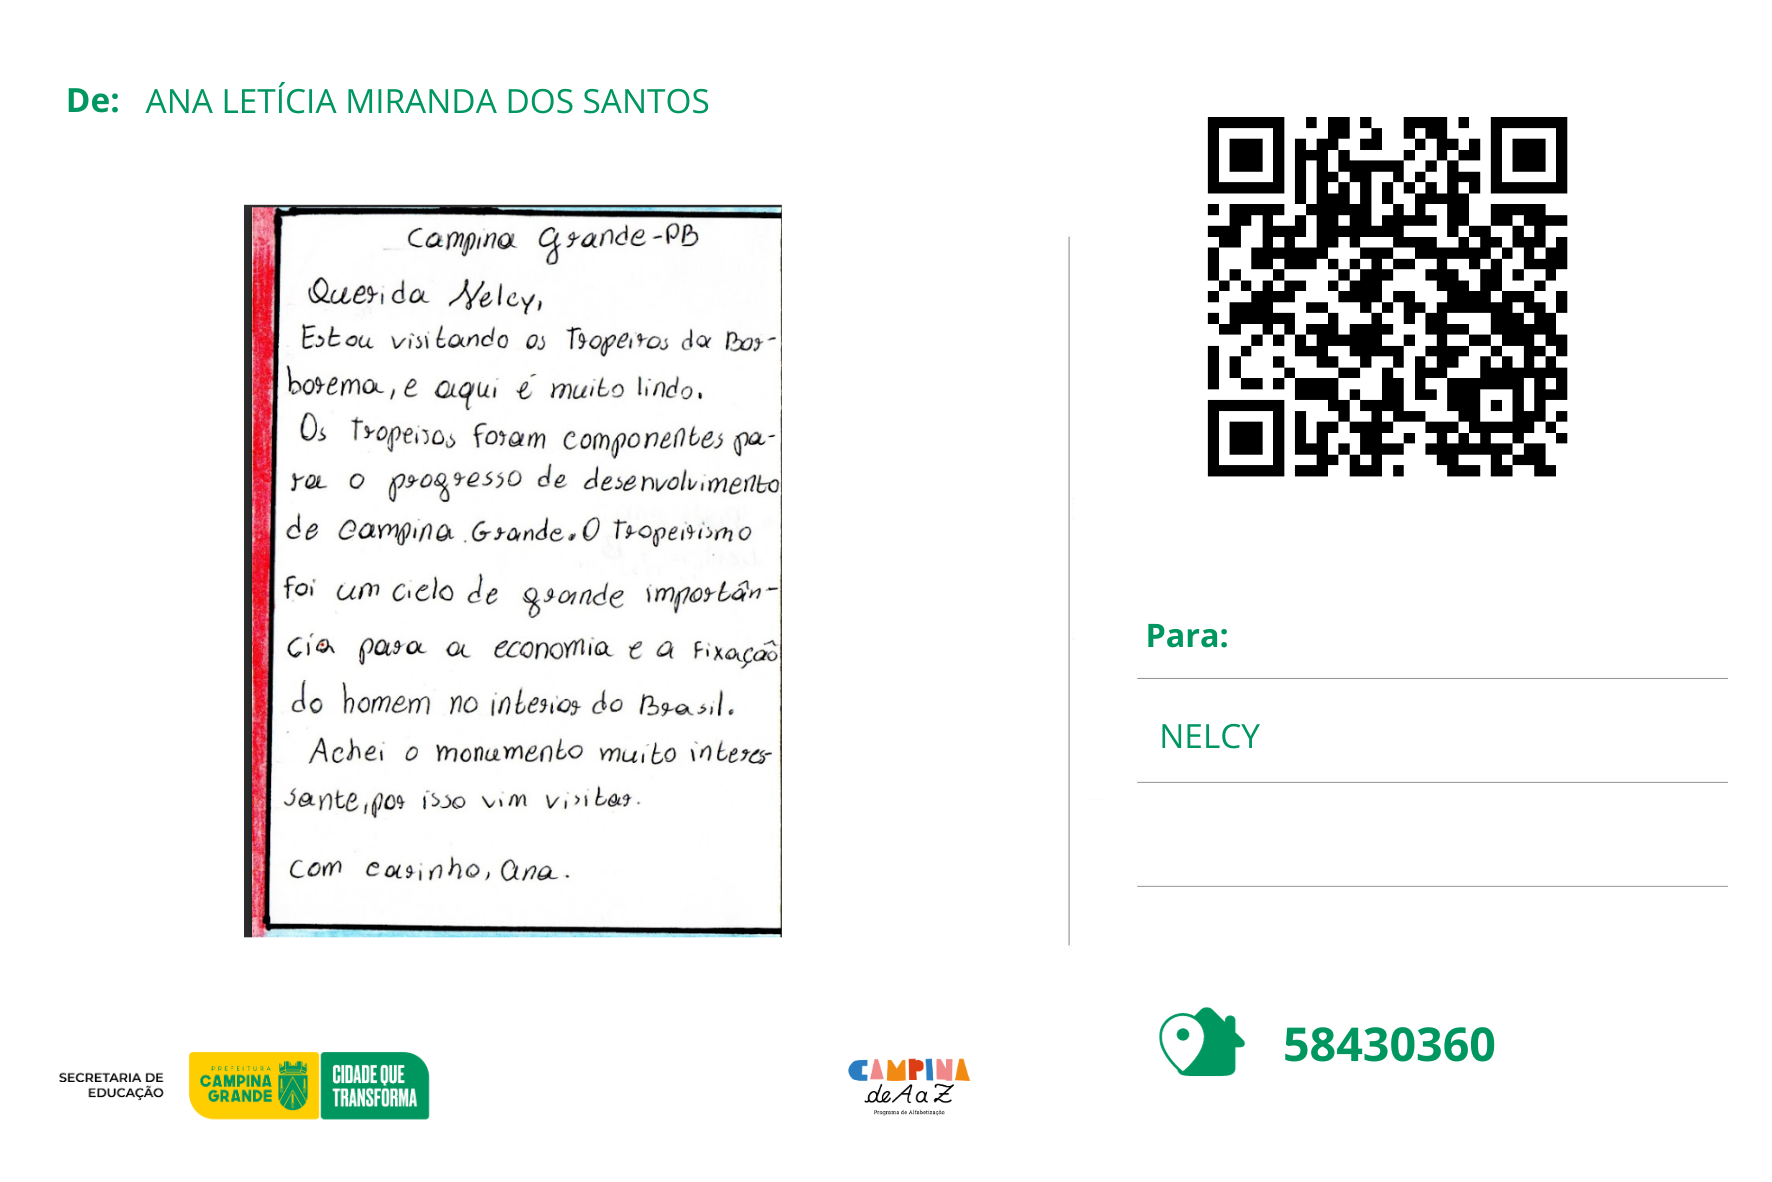 De: ANA LETÍCIA MIRANDA DOS SANTOS
Campina Grande-PB
Querida Nelcy,
Estou visitando os Tropeiros da Bor-
borema, e aqui é muito lindo.
Os Tropeiros foram componentes pa-
ra o progresso de desenvolvimento
de Campina Grande. O Tropeirismo
foi um ciclo de grande importân-
cia para a economia e a fixação
do homem no interior do Brasil.
Achei o monumento muito interes-
sante, por isso vim visitar.
Com carinho, Ana.
Para:
NELCY
58430360
SECRETARIA DE
EDUCAÇÃO
PREFEITURA
CAMPINA
GRANDE
CIDADE QUE
TRANSFORMA
CAMPINA
de A a Z
Programa de Alfabetização